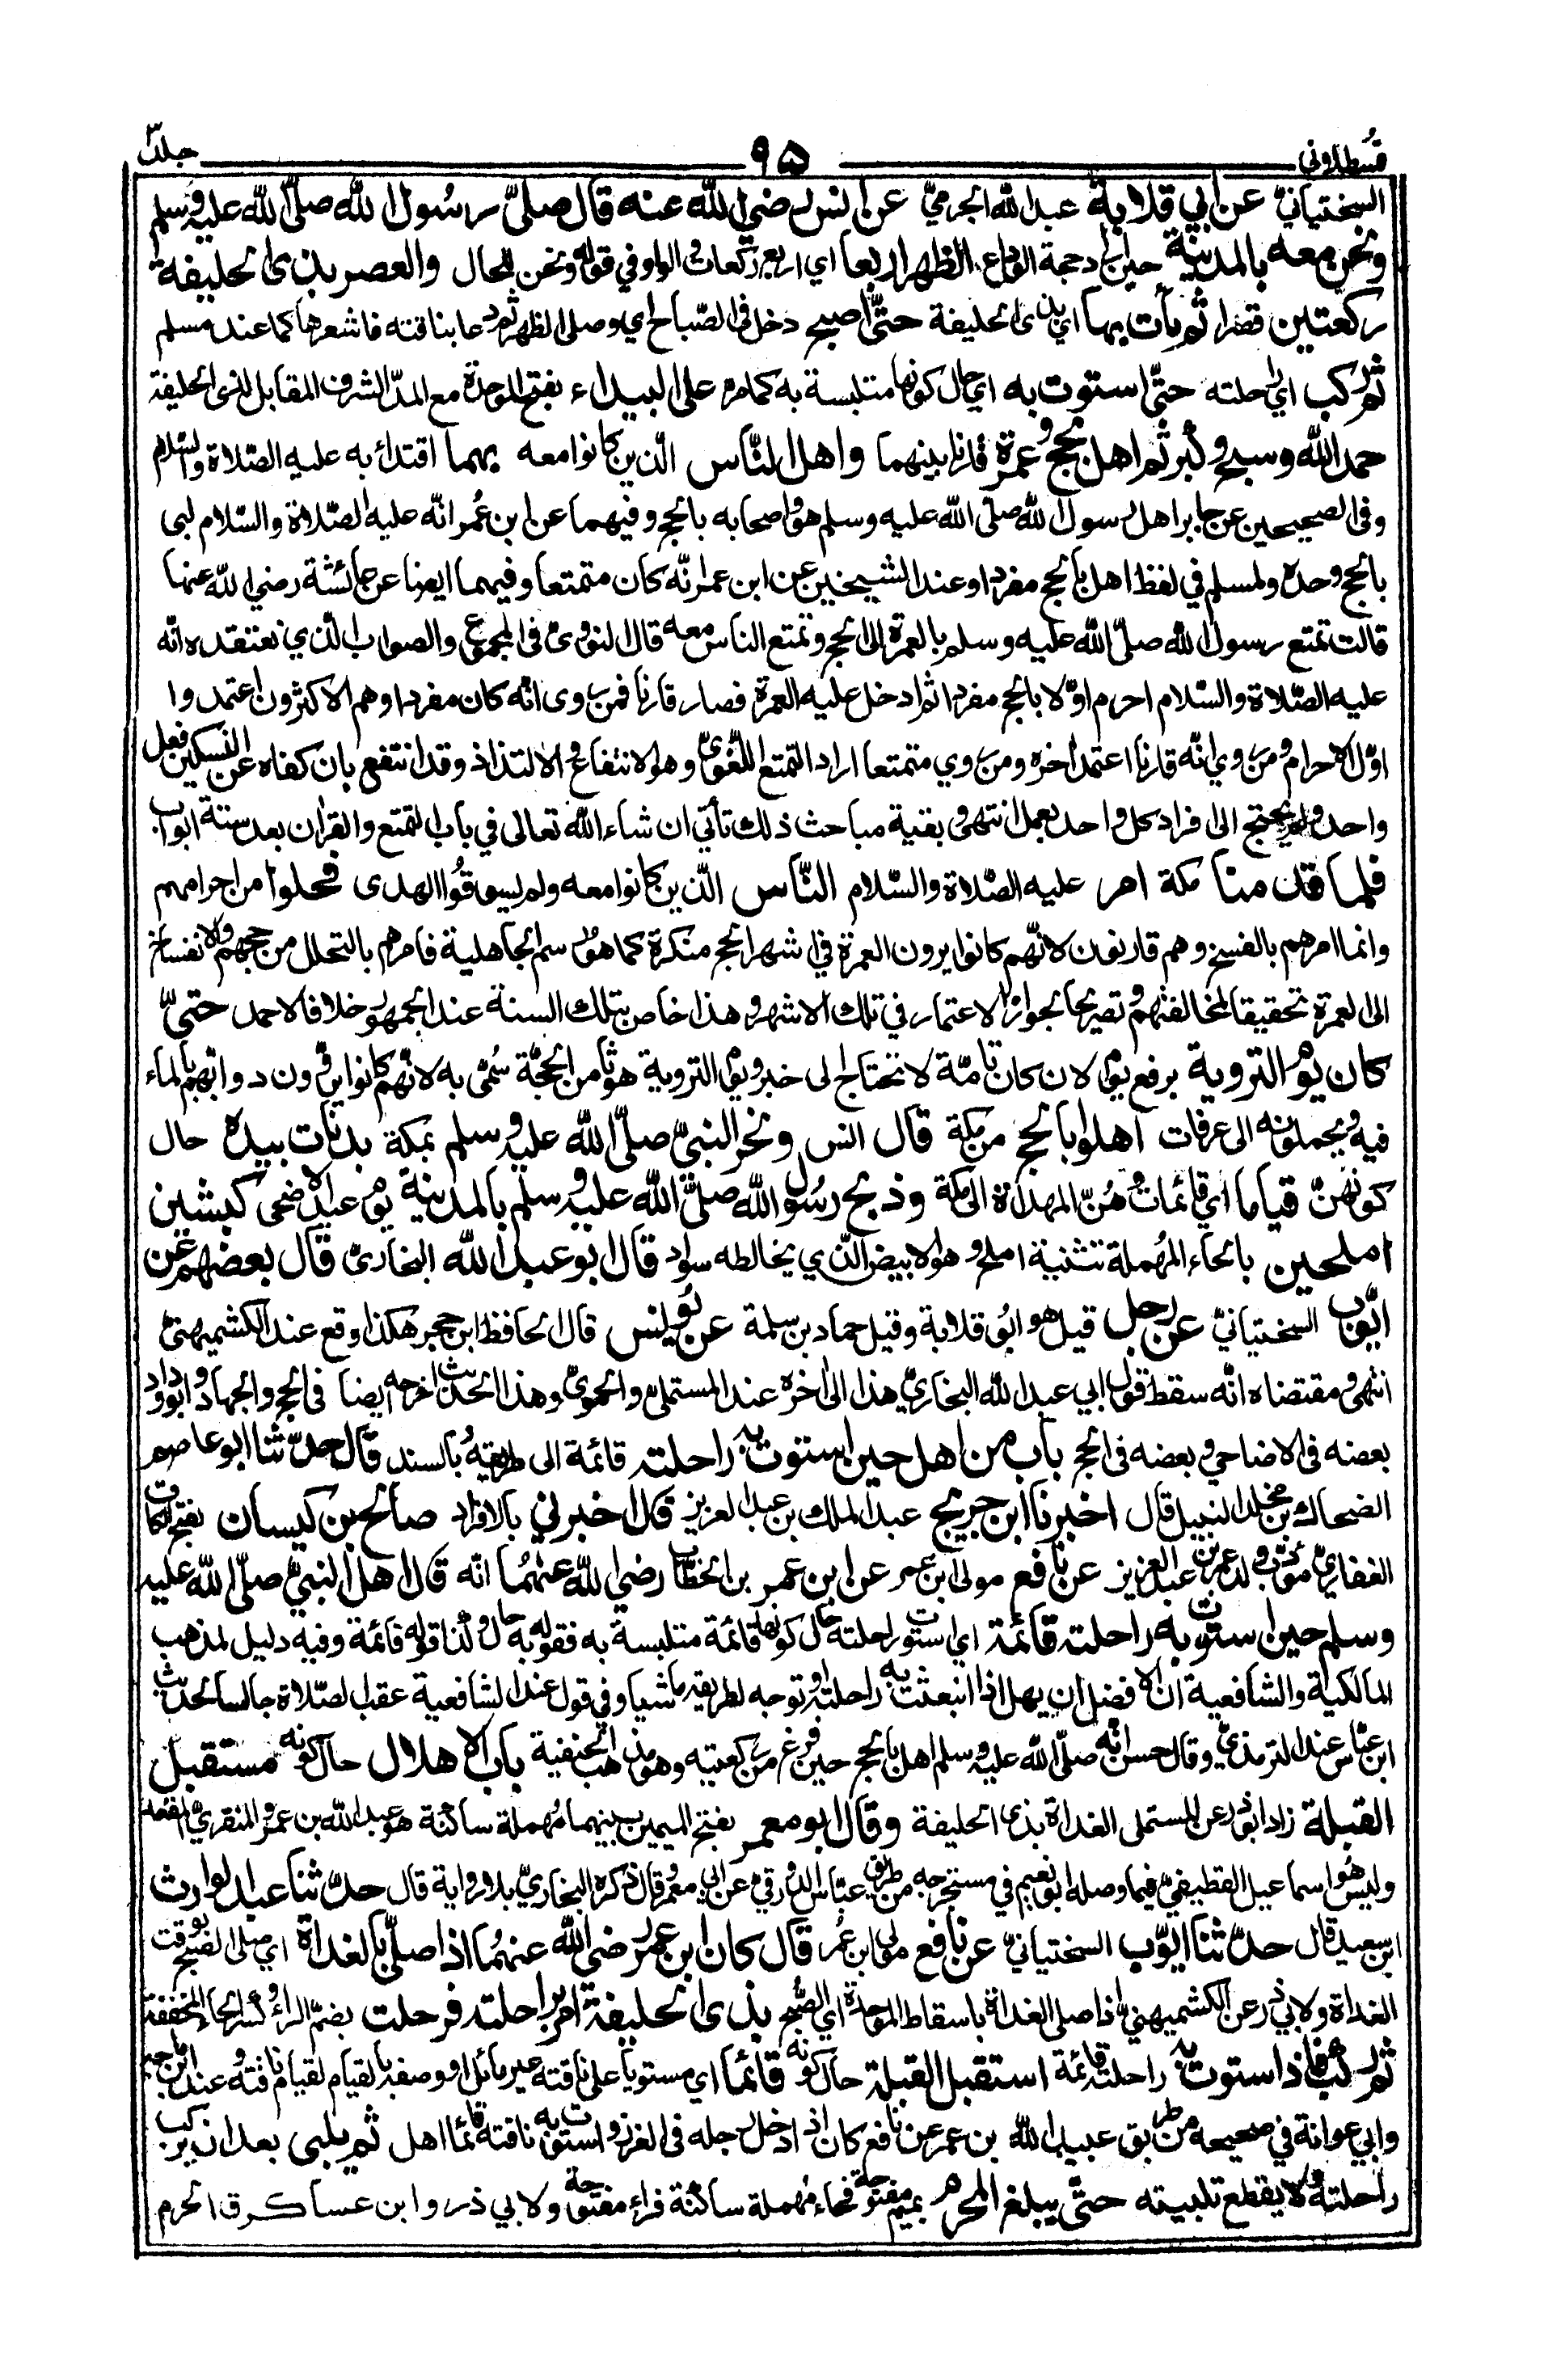 قسطلاني ٩٥ جلد٣
السختياني عن ابي قلابة عبد الله الجرمي عن انس رضي الله عنه قال صلى رسول الله صلى الله عليه وسلم
ونحن معه بالمدينة حين اراد حجة الوداع الظهر اربعا اي اربع ركعات والواو في قوله ونحن للحال والعصر بذي الحليفة
ركعتين قصرا ثم بات بها اي بذي الحليفة حتى اصبح دخل في الصباح اي وصلى الظهر ثم دعا بناقته فاشعرها كما عند مسلم
ثم ركب اي راحلته حتى استوت به اي حال كونها متلبسة به كما مر على البيداء بفتح الموحدة مع المد الشرف المقابل لذي الحليفة
حمد الله وسبح وكبر ثم اهل بحج وعمرة قارنا بينهما واهل الناس الذين كانوا معه بهما اقتداء به عليه الصلاة والسلام
وفي الصحيحين عن جابر اهل رسول الله صلى الله عليه وسلم هو واصحابه بالحج وفيهما عن ابن عمر انه عليه الصلاة والسلام لبى
بالحج وحده ولمسلم في لفظ اهل بالحج مفردا وعند الشيخين عن ابن عمر انه كان متمتعا وفيهما ايضا عن عائشة رضي الله عنها
قالت تمتع رسول الله صلى الله عليه وسلم بالعمرة الى الحج وتمتع الناس معه قال النووي في المجموع والصواب الذي نعتقده انه
عليه الصلاة والسلام احرم اولا بالحج مفردا ثم ادخل عليه العمرة فصار قارنا فمن روى انه كان مفردا وهم الاكثرون اعتمدوا
اول الاحرام ومن روى انه قارنا اعتمد اخره ومن روى متمتعا اراد التمتع اللغوي وهو الانتفاع والالتذاذ وقد انتفع بان كفاه عن النسكين فعل
واحد ولم يحتج الى افراد كل واحد بعمل انتهى وبقية مباحث ذلك تأتي ان شاء الله تعالى في باب التمتع والقران بعد ستة ابواب
فلما قدمنا مكة امر عليه الصلاة والسلام الناس الذين كانوا معه ولم يسوقوا الهدى فحلوا من احرامهم
وانما امرهم بالفسخ وهم قارنون لانهم كانوا يرون العمرة في اشهر الحج منكرة كما هو رسم الجاهلية فامرهم بالتحلل من حجهم والانفساخ
الى العمرة تحقيقا لمخالفتهم وتصريحا بجواز الاعتمار في تلك الاشهر وهذا خاص بتلك السنة عند الجمهور خلافا لاحمد حتى
كان يوم التروية برفع يوم لان كان تامة لا تحتاج الى خبر ويوم التروية هو ثامن الحجة سمي به لانهم كانوا يروون دوابهم بالماء
فيه ويحملونه الى عرفات اهلوا بالحج من مكة قال انس ونحر النبي صلى الله عليه وسلم بمكة بدنات بيده حال
كونهن قياما اي قائمات وهن المهداة الى مكة وذبح رسول الله صلى الله عليه وسلم بالمدينة يوم عيد الاضحى كبشين
املحين بالحاء المهملة تثنية املح وهو الابيض الذي يخالطه سواد قال ابو عبد الله البخاري قال بعضهم عن
ايوب السختياني عن رجل قيل هو ابو قلابة وقيل حماد بن سلمة عن انس قال الحافظ ابن حجر هكذا وقع عند الكشميهني
انتهى ومقتضاه انه سقط قول ابي عبد الله البخاري هذا الى اخره عند المستملي والحموي وهذا الحديث اخرجه ايضا في الحج والجهاد وابو داود
بعضه في الاضاحي وبعضه في الحج باب من اهل حين استوت به راحلته قائمة الى طريقه وبالسند قال حدثنا ابو عاصم
الضحاك بن مخلد النبيل قال اخبرنا ابن جريج عبد الملك بن عبد العزيز قال اخبرني بالافراد صالح بن كيسان بفتح الكاف
الغفاري مؤدب ولد عمر بن عبد العزيز عن نافع مولى ابن عمر عن ابن عمر بن الخطاب رضي الله عنهما انه قال اهل النبي صلى الله عليه
وسلم حين استوت به راحلته قائمة اي استوت راحلته حال كونها قائمة متلبسة به فقوله به حال وكذا قوله قائمة وفيه دليل لمذهب
المالكية والشافعية ان الافضل ان يهل اذا انبعثت به راحلته او توجه لطريقه ماشيا وفي قول عند الشافعية عقب الصلاة جالسا لحديث
ابن عباس عند الترمذي وقال حسن انه صلى الله عليه وسلم اهل بالحج حين فرغ من ركعتيه وهو مذهب الحنفية باب الاهلال حال كونه مستقبل
القبلة زاد ابو ذر عن المستملي الغداة بذي الحليفة وقال ابو معمر بفتح الميمين بينهما مهملة ساكنة هو عبد الله بن عمرو المنقري المقعد
وليس هو اسماعيل القطيعي فيما وصله ابو نعيم في مستخرجه من طريق عباس الدوري عن ابي معمر وقال ذكره البخاري بلا رواية قال حدثنا عبد الوارث
ابن سعيد قال حدثنا ايوب السختياني عن نافع مولى ابن عمر قال كان ابن عمر رضي الله عنهما اذا صلى بالغداة اي صلى الصبح بوقت
الغداة ولابي ذر عن الكشميهني اذا صلى الغداة باسقاط الموحدة اي الصبح بذي الحليفة امر براحلته فرحلت بضم الراء وكسر الحاء المخففة
ثم ركب فاذا استوت به راحلته قائمة استقبل القبلة حال كونه قائما اي مستويا على ناقته غير مائل او وصفه بالقيام لقيام ناقته وعند ابن ماجه
وابي عوانة في صحيحه من طريق عبيد الله بن عمر عن نافع كان اذا ادخل رجله في الغرز واستوت به ناقته قائما اهل ثم يلبي بعد ان يركب
راحلته ولا يقطع تلبيته حتى يبلغ المحرم بميم مفتوحة فحاء مهملة ساكنة فراء مفتوحة ولابي ذر وابن عساكر الحرم